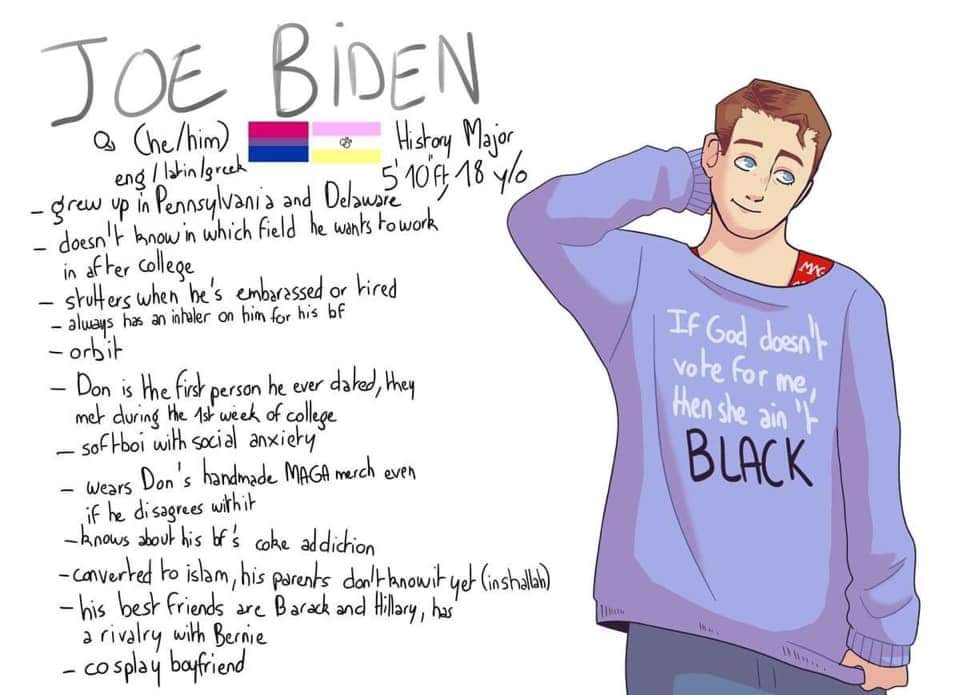 JOE BIDEN
(he/him) History Major
eng / latin/greek 5'10"ft, 18 y/o
- grew up in Pennsylvania and Delaware
- doesn't know in which field he wants to work
in after college
- stutters when he's embarassed or tired
- always has an inhaler on him for his bf
- orbit
- Don is the first person he ever dated, they
met during the 1st week of college
- softboi with social anxiety
- wears Don's handmade MAGA merch even
if he disagrees with it
- knows about his bf's coke addiction
- converted to islam, his parents don't know it yet (inshallah)
- his best friends are Barack and Hillary, has
a rivalry with Bernie
- cosplay boyfriend
MAG
If God doesn't
vote for me,
then she ain't
BLACK